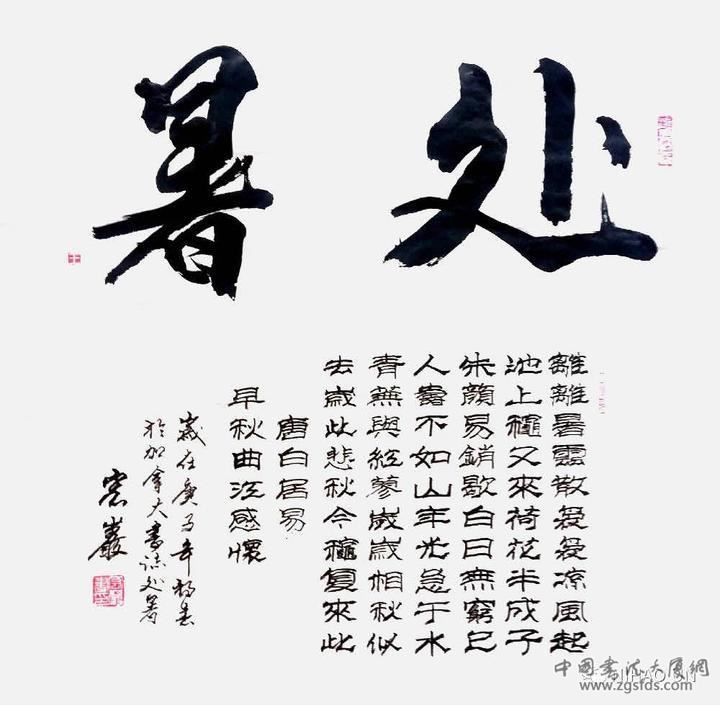 处暑
離離暑雲散裊裊凉風起
池上龝又來荷花半成子
朱顔易銷歇白日無窮已
人壽不如山年光急于水
青蕪與紅蓼歲歲相秋似
去歲此悲秋今龝复來此
唐白居易
早秋曲江感懷
歲在庚子年初春
於加拿大書誌处暑
中国书法大厦網
www.zgsfds.com